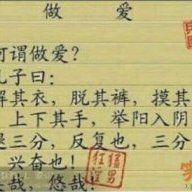 做 爱
何谓做爱?
孔子曰:
解其衣,脱其裤,摸其
,上下其手,举阳入阴
退三分,反复也,三
,兴奋也!
哉,悠哉。